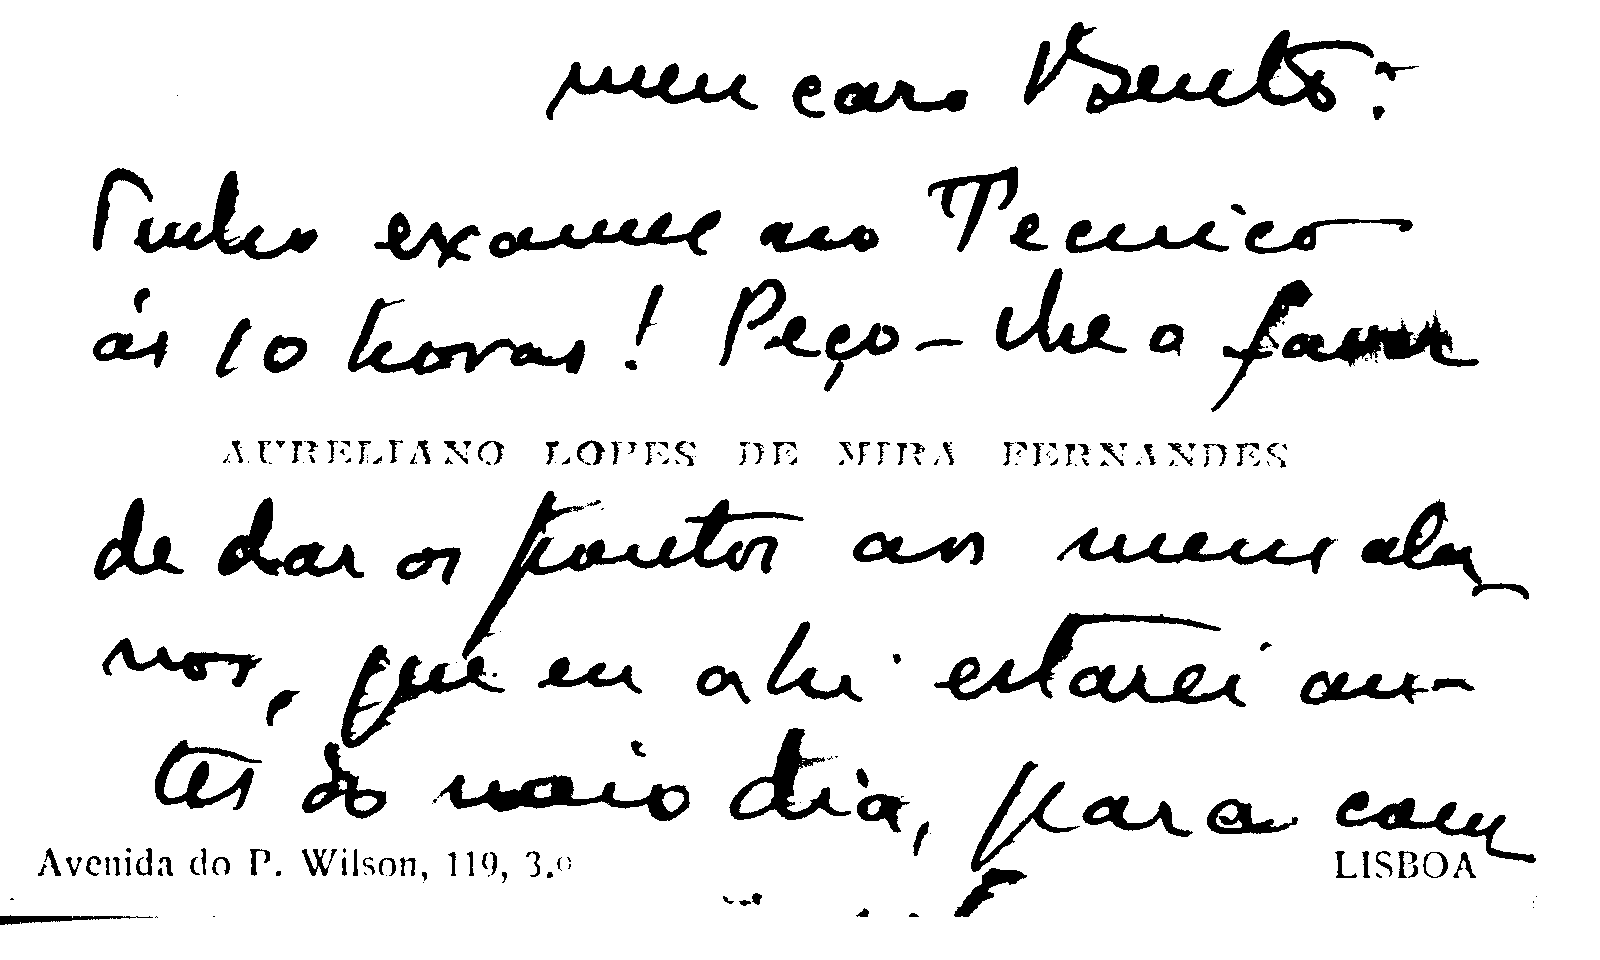 meu caro Bento:
Tenho exame no Tecnico
ás 10 horas! Peço-lhe o favor
AURELIANO LOPES DE MIRA FERNANDES
de dar os pontos aos meus alu
nos, que eu ahi estarei an-
tes do meio dia, para com
Avenida do P. Wilson, 119, 3.º LISBOA